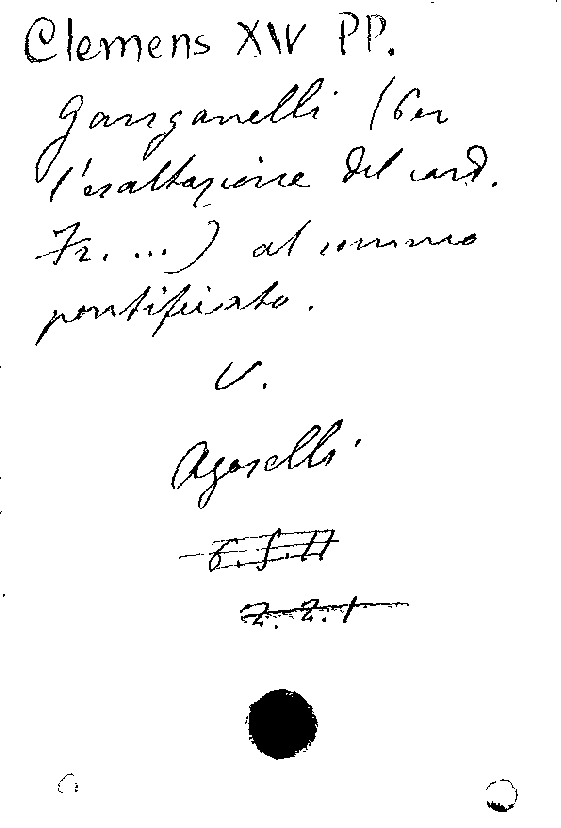 Clemens XIV PP.
Ganganelli (Per
l'esaltazione del card.
Fr. ...) al sommo
pontificato.
V.
Agorelli
6.S.17
Z.Z.1